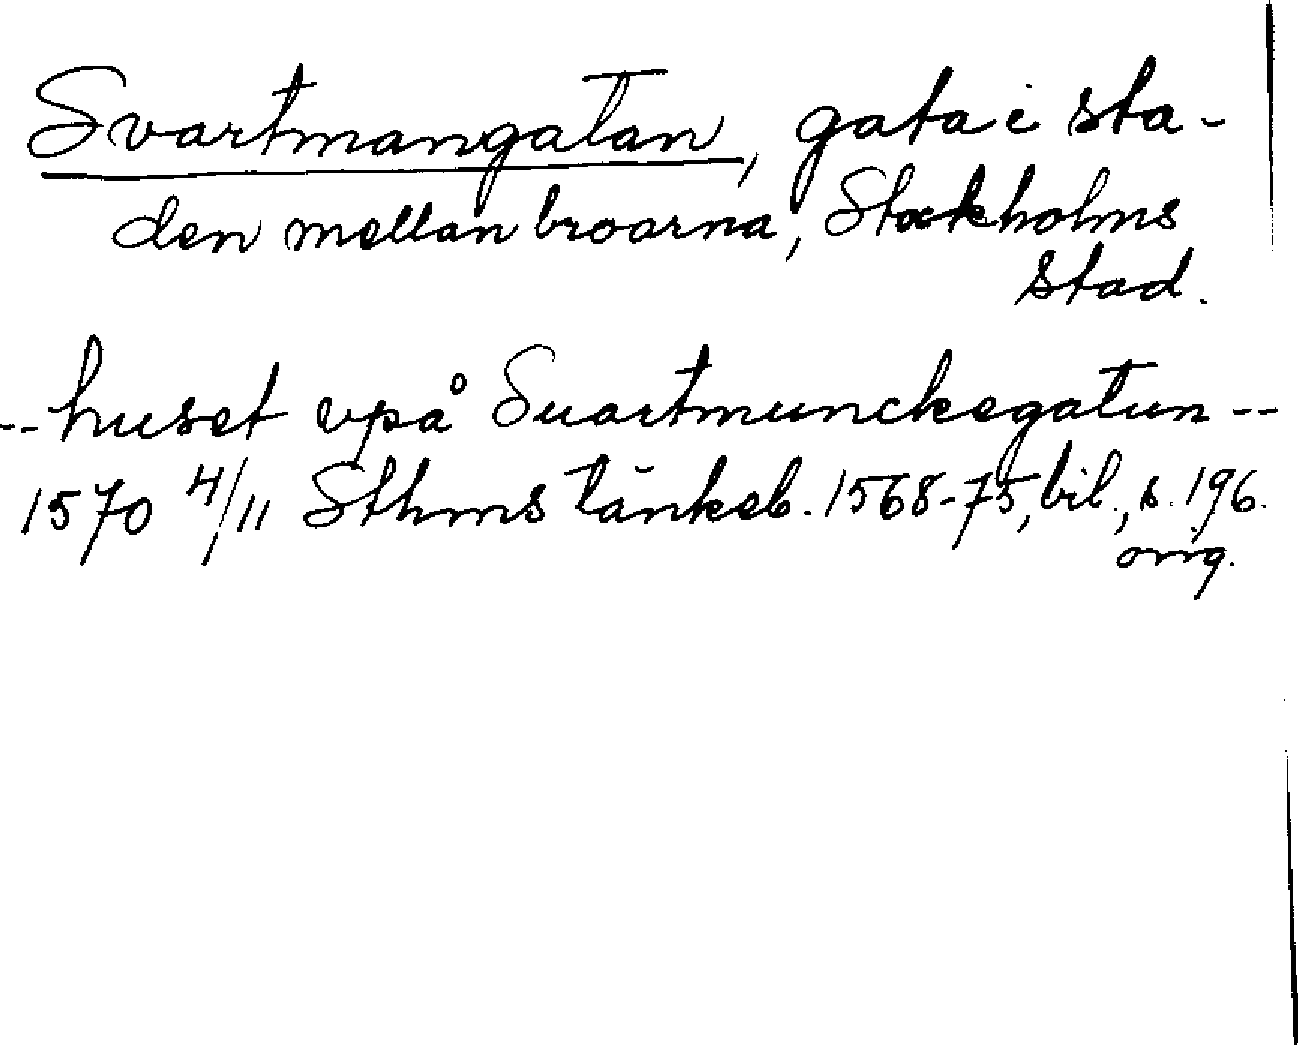 Svartmangatan, gata i sta-
den mellan broarna, Stockholms
stad.
-- huset vpå Suartmunckegatun --
1570 4/11 Sthms tänkeb. 1568-75, bil., s. 196.
orig.